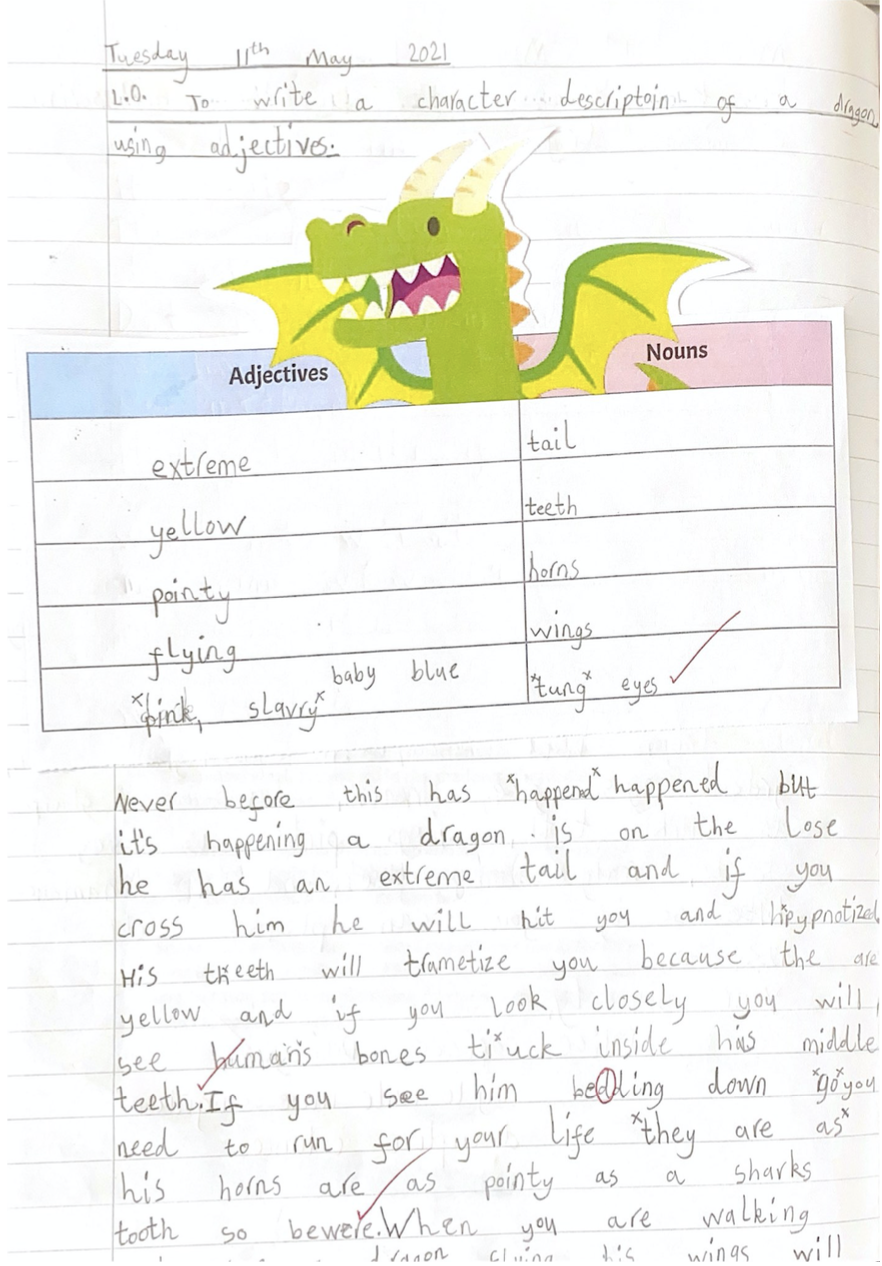 Tuesday 11th May 2021
L.O. To write a character descriptoin of a dragon
using adjectives.
Adjectives Nouns
extreme tail
yellow teeth
pointy horns
flying wings
baby blue
*pink, slavry* *tung* eyes
Never before this has *happend* happened but
it's happening a dragon is on the lose
he has an extreme tail and if you
cross him he will hit you and
His teeth will trametize you because the are
yellow and if you look closely you will
see human's bones inside has middle
teeth. If you see him down *go* you
need to run for your life *they are as*
his horns are as pointy as a sharks
tooth so bewere. When you are walking
dragon flying his wings will